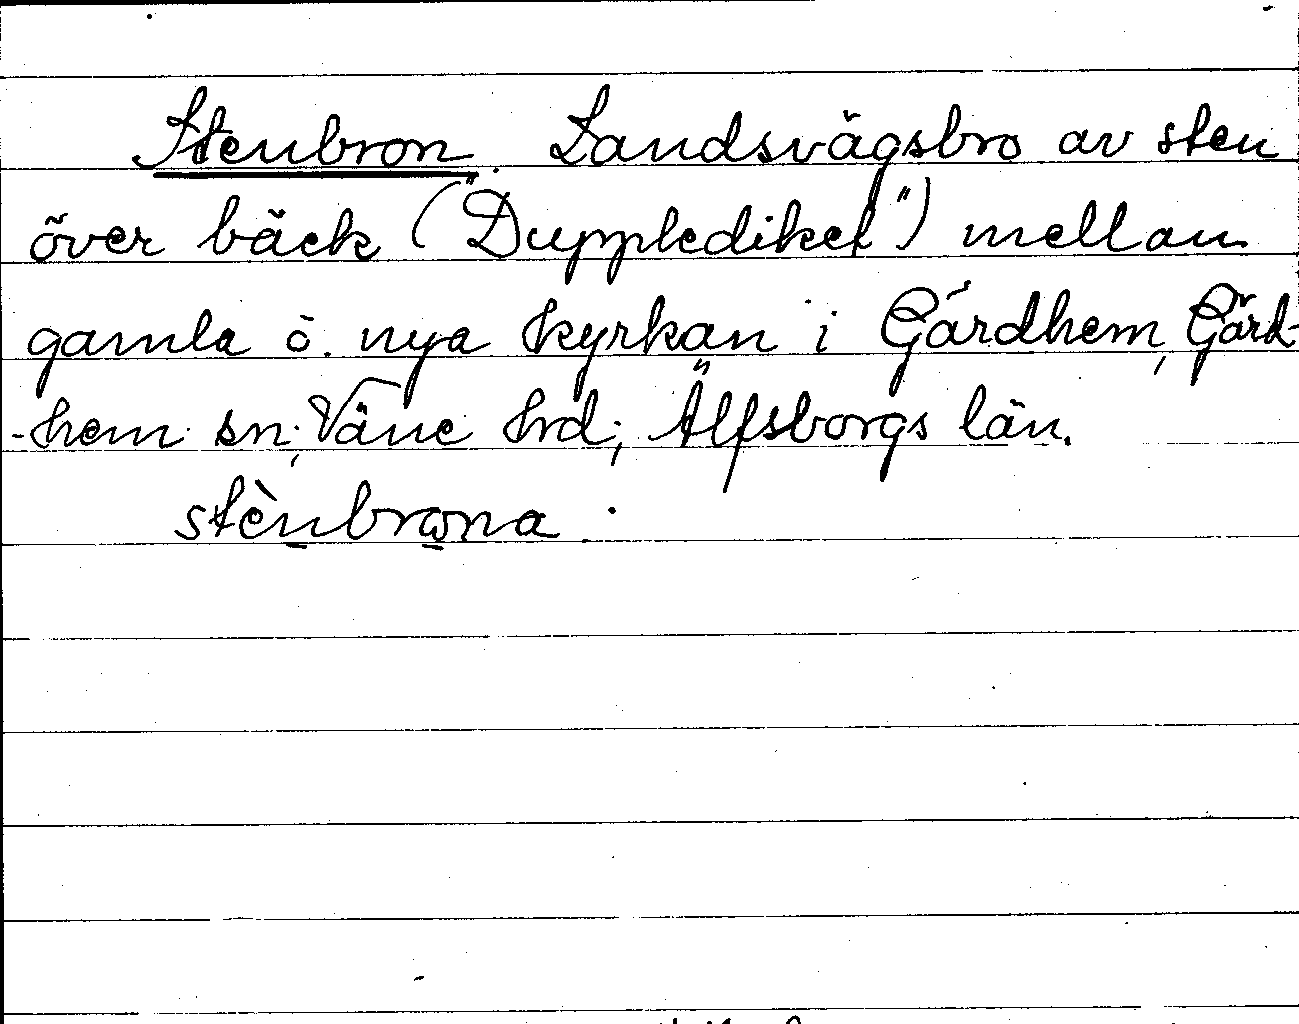 Stenbron. Landsvägsbro av sten
över bäck ("Dupplediket") mellan
gamla o. nya kyrkan i Gärdhem, Gärd-
-hem sn; Väne hrd; Älfsborgs län.
stènbrona.